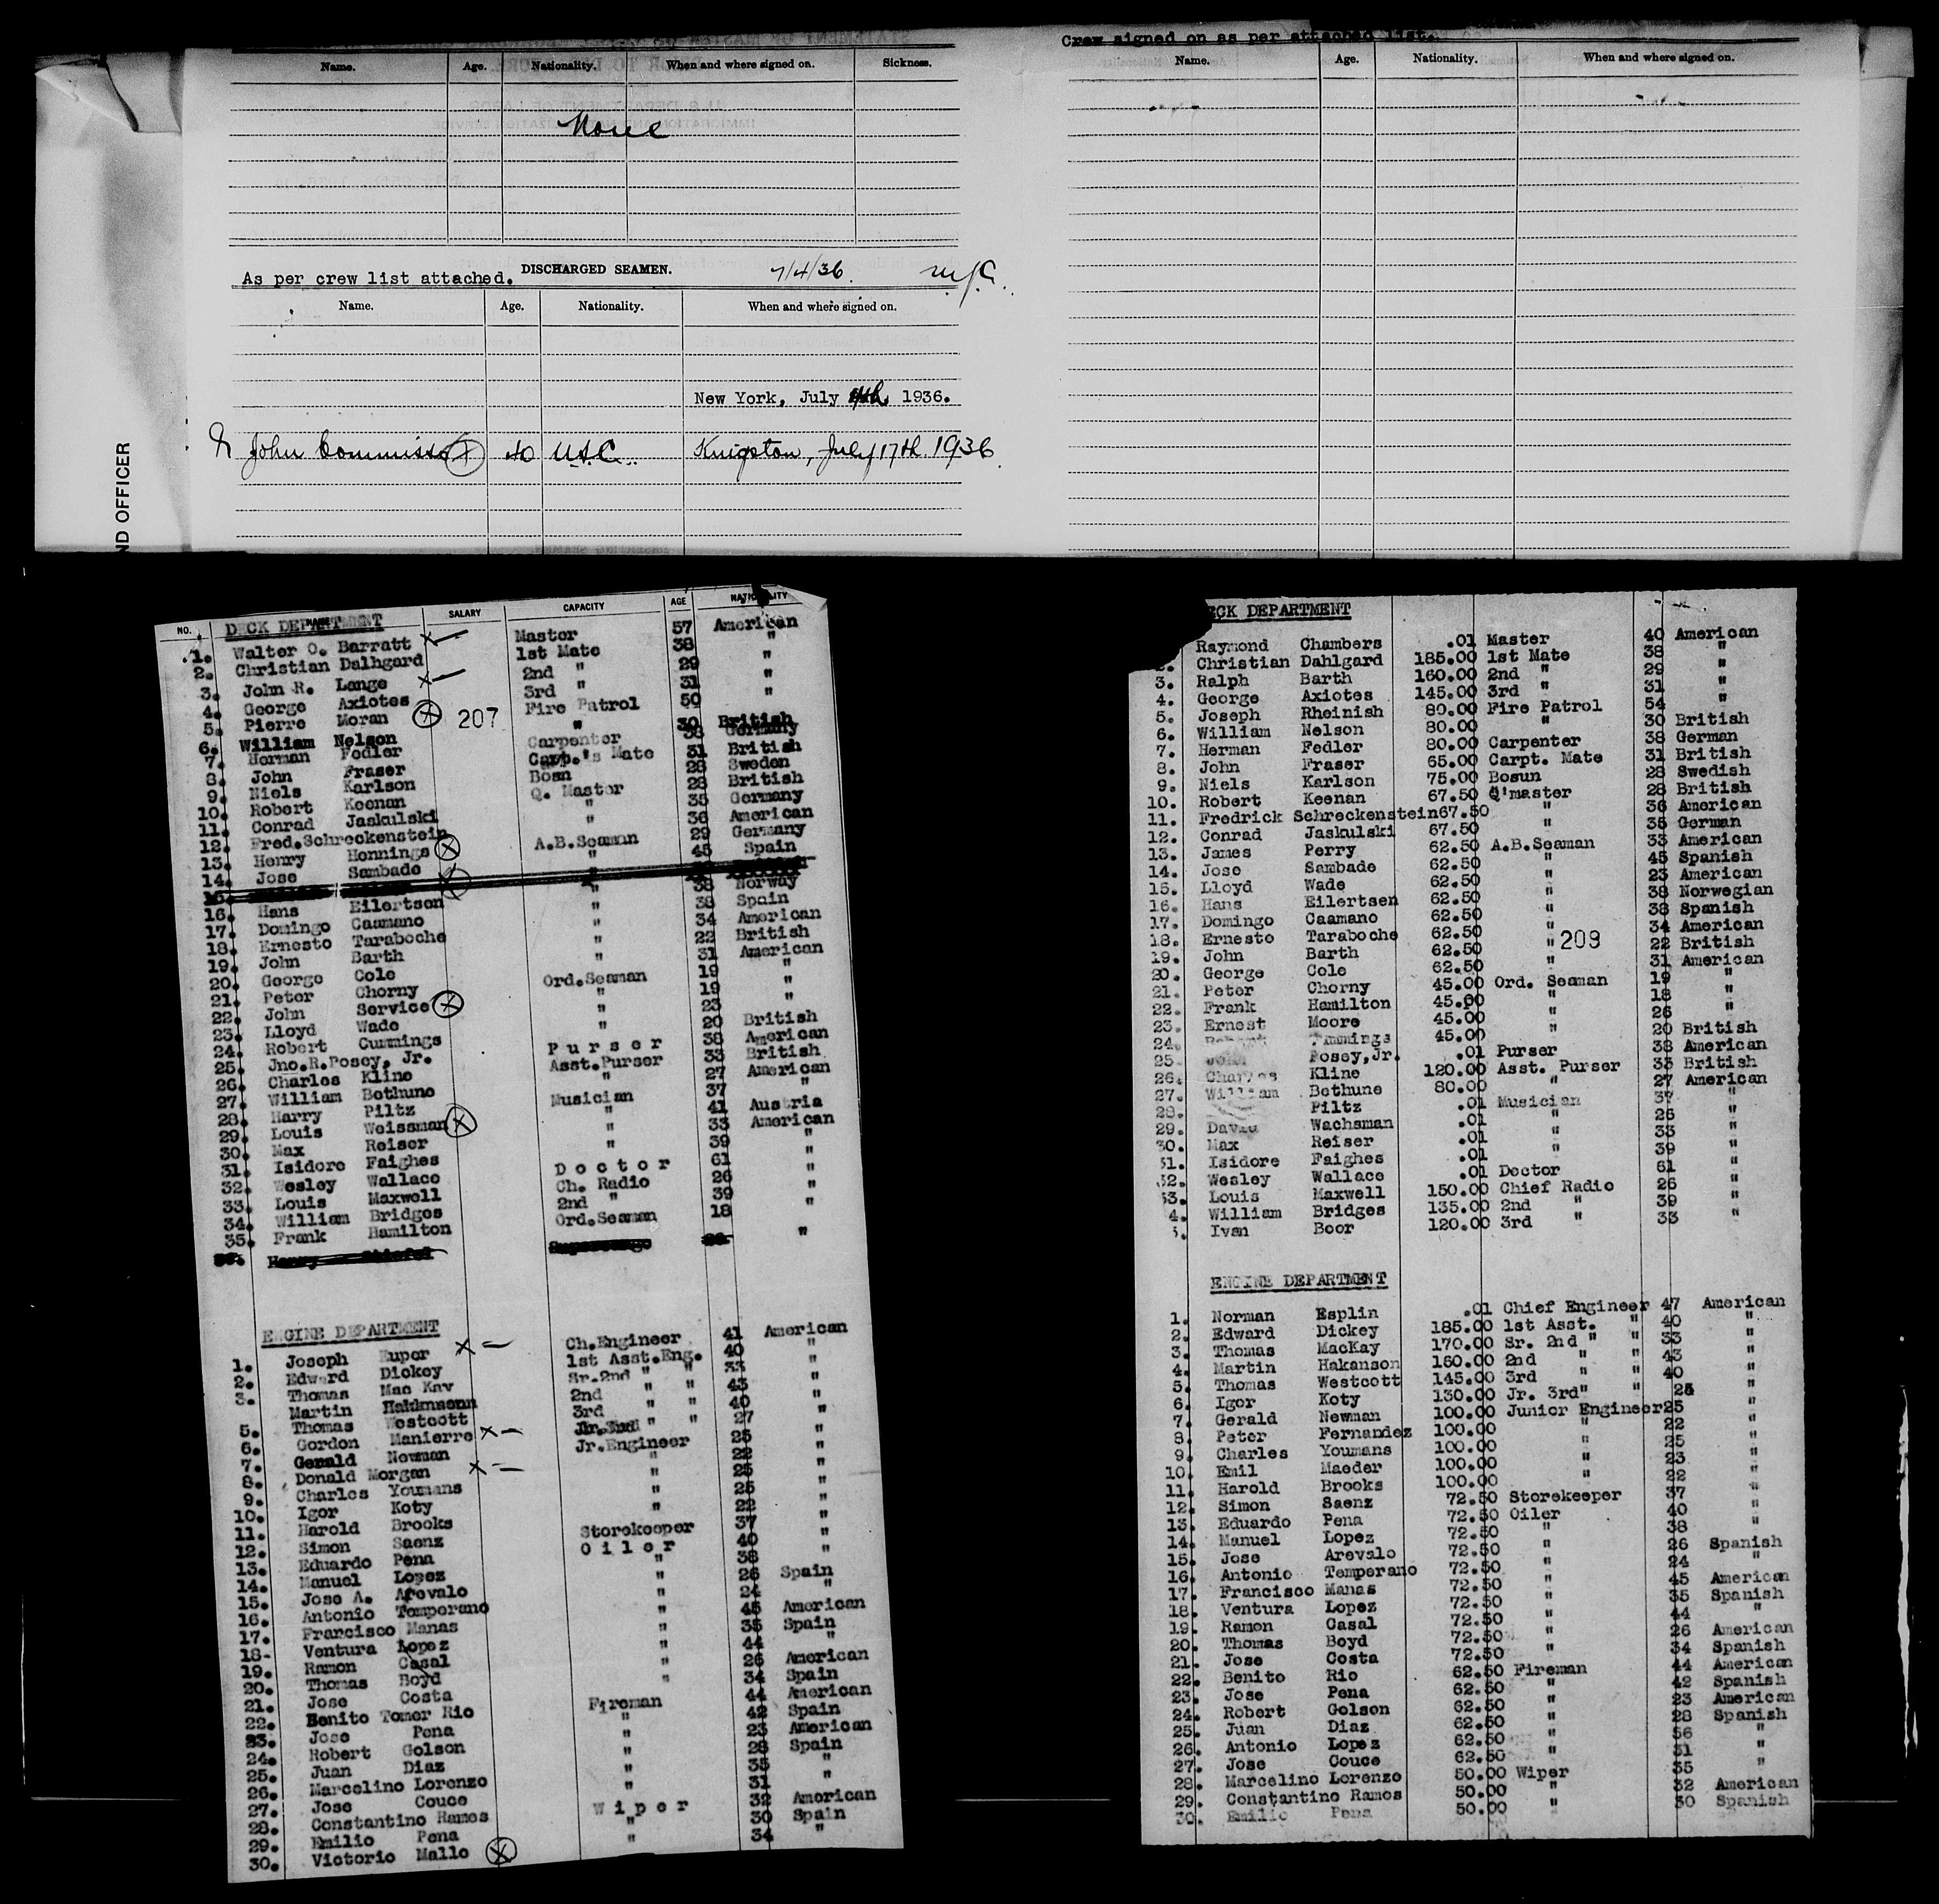 Crew signed on as per attached list.
Name. Age. Nationality. When and where signed on. Sickness.
None
As per crew list attached. DISCHARGED SEAMEN. 7/4/36.
Name. Age. Nationality. When and where signed on.
New York, July 4th, 1936.
John Commisso 40 U.S.C. Knigston, July 17th. 1936
ND OFFICER
Name. Age. Nationality. When and where signed on.
NO. NAME SALARY CAPACITY AGE NATIONALITY
DECK DEPARTMENT
1. Walter O. Barratt x— Master 57 American
2. Christian Dalhgard 1st Mate 38 "
3. John R. Lange x— 2nd " 29 "
4. George Axiotes 3rd " 31 "
5. Pierre Moran x 207 Fire Patrol 50 "
6. William Nelson " 30 British
7. Herman Fedler Carpenter 38 Germany
8. John Fraser Carp.'s Mate 31 British
9. Niels Karlson Bosn 28 Sweden
10. Robert Keenan Q. Master 28 British
11. Conrad Jaskulski " 35 Germany
12. Fred.Schreckenstein " 36 American
13. Henry Hennings x A.B.Seaman 29 Germany
14. Jose Sambade " 45 Spain
16. Hans Eilertsen " 38 Norway
17. Domingo Caamano " 38 Spain
18. Ernesto Taraboche " 34 American
19. John Barth " 22 British
20. George Cole " 31 American
21. Peter Chorny Ord.Seaman 19 "
22. John Service x " 19 "
23. Lloyd Wade " 23 "
24. Robert Cummings " 20 British
25. Jno.R.Posey, Jr. Purser 38 American
26. Charles Kline Asst.Purser 33 British
27. William Bethune " 27 American
28. Harry Piltz Musician 37 "
29. Louis Weissman x " 41 Austria
30. Max Reiser " 33 American
31. Isidore Faighes " 39 "
32. Wesley Wallace Doctor 61 "
33. Louis Maxwell Ch. Radio 26 "
34. William Bridges 2nd " 39 "
35. Frank Hamilton Ord.Seaman 18 "
Henry "
ENGINE DEPARTMENT
1. Joseph Euper x— Ch.Engineer 41 American
2. Edward Dickey 1st Asst.Eng. 40 "
3. Thomas Mac Kay Sr.2nd " " 33 "
Martin Hakknsonn 2nd " " 43 "
5. Thomas Westcott 3rd " " 40 "
6. Gordon Manierre x— Jr.3rd " " 27 "
7. Gerald Newman Jr.Engineer 25 "
8. Donald Morgan x— " 22 "
9. Charles Youmans " 25 "
10. Igor Koty " 25 "
11. Harold Brooks " 22 "
12. Simon Saenz Storekeeper 37 "
13. Eduardo Pena Oiler 40 "
14. Manuel Lopez " 38 "
15. Jose A. Arevalo " 26 Spain
16. Antonio Temperano " 24 "
17. Francisco Manas " 45 American
18- Ventura Lopez " 35 Spain
19. Ramon Casal " 44 "
20. Thomas Boyd " 26 American
21. Jose Costa " 34 Spain
22. Benito Tomer Rio Fireman 44 American
23. Jose Pena " 42 Spain
24. Robert Golson " 23 American
25. Juan Diaz " 28 Spain
26. Marcelino Lorenzo " 35 "
27. Jose Couce " 31 "
28. Constantino Rames Wiper 32 American
29. Emilio Pena " 30 Spain
30. Victorio Mallo x " 34 "
ECK DEPARTMENT
Raymond Chambers .01 Master 40 American
2. Christian Dahlgard 185.00 1st Mate 38 "
3. Ralph Barth 160.00 2nd " 29 "
4. George Axiotes 145.00 3rd " 31 "
5. Joseph Rheinish 80.00 Fire Patrol 54 "
6. William Nelson 80.00 " 30 British
7. Herman Fedler 80.00 Carpenter 38 German
8. John Fraser 65.00 Carpt. Mate 31 British
9. Niels Karlson 75.00 Bosun 28 Swedish
10. Robert Keenan 67.50 Q'master 28 British
11. Fredrick Schreckenstein 67.50 " 36 American
12. Conrad Jaskulski 67.50 " 35 German
13. James Perry 62.50 A.B.Seaman 33 American
14. Jose Sambade 62.50 " 45 Spanish
15. Lloyd Wade 62.50 " 23 American
16. Hans Eilertsen 62.50 " 38 Norwegian
17. Domingo Caamano 62.50 " 38 Spanish
18. Ernesto Taraboche 62.50 " 34 American
19. John Barth 62.50 " 209 22 British
20. George Cole 62.50 " 31 American
21. Peter Chorny 45.00 Ord. Seaman 19 "
22. Frank Hamilton 45.00 " 18 "
23. Ernest Moore 45.00 " 26 "
24. 45.00 " 20 British
25. John Posey,Jr. .01 Purser 38 American
26. Charles Kline 120.00 Asst. Purser 33 British
27. William Bethune 80.00 " 27 American
28. Piltz .01 Musician 37 "
29. David Wachsman .01 " 25 "
30. Max Reiser .01 " 33 "
31. Isidore Faighes .01 " 39 "
32. Wesley Wallace .01 Doctor 61 "
33. Louis Maxwell 150.00 Chief Radio 26 "
4. William Bridges 135.00 2nd " 39 "
5. Ivan Boor 120.00 3rd " 33 "
ENGINE DEPARTMENT
1. Norman Esplin .01 Chief Engineer 47 American
2. Edward Dickey 185.00 1st Asst. " 40 "
3. Thomas MacKay 170.00 Sr. 2nd " " 33 "
4. Martin Hakanson 160.00 2nd " " 43 "
5. Thomas Westcott 145.00 3rd " " 40 "
6. Igor Koty 130.00 Jr. 3rd" " 25 "
7. Gerald Newman 100.00 Junior Engineer 25 "
8. Peter Fernandez 100.00 " 22 "
9. Charles Youmans 100.00 " 25 "
10. Emil Maeder 100.00 " 23 "
11. Harold Brooks 100.00 " 22 "
12. Simon Saenz 72.50 Storekeeper 37 "
13. Eduardo Pena 72.50 Oiler 40 "
14. Manuel Lopez 72.50 " 38 "
15. Jose Arevalo 72.50 " 26 Spanish
16. Antonio Temperano 72.50 " 24 "
17. Francisco Manas 72.50 " 45 American
18. Ventura Lopez 72.50 " 35 Spanish
19. Ramon Casal 72.50 " 44 "
20. Thomas Boyd 72.50 " 26 American
21. Jose Costa 72.50 " 34 Spanish
22. Benito Rio 62.50 Fireman 44 American
23. Jose Pena 62.50 " 42 Spanish
24. Robert Golson 62.50 " 23 American
25. Juan Diaz 62.50 " 28 Spanish
26. Antonio Lopez 62.50 " 56 "
27. Jose Couce 62.50 " 31 "
28. Marcelino Lorenzo 50.00 Wiper 35 "
29. Constantino Ramos 50.00 " 32 American
30. Emilio Pena 50.00 " 30 Spanish